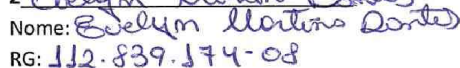 Nome: Evelyn Martins Dantas
RG: 112.839.174-08